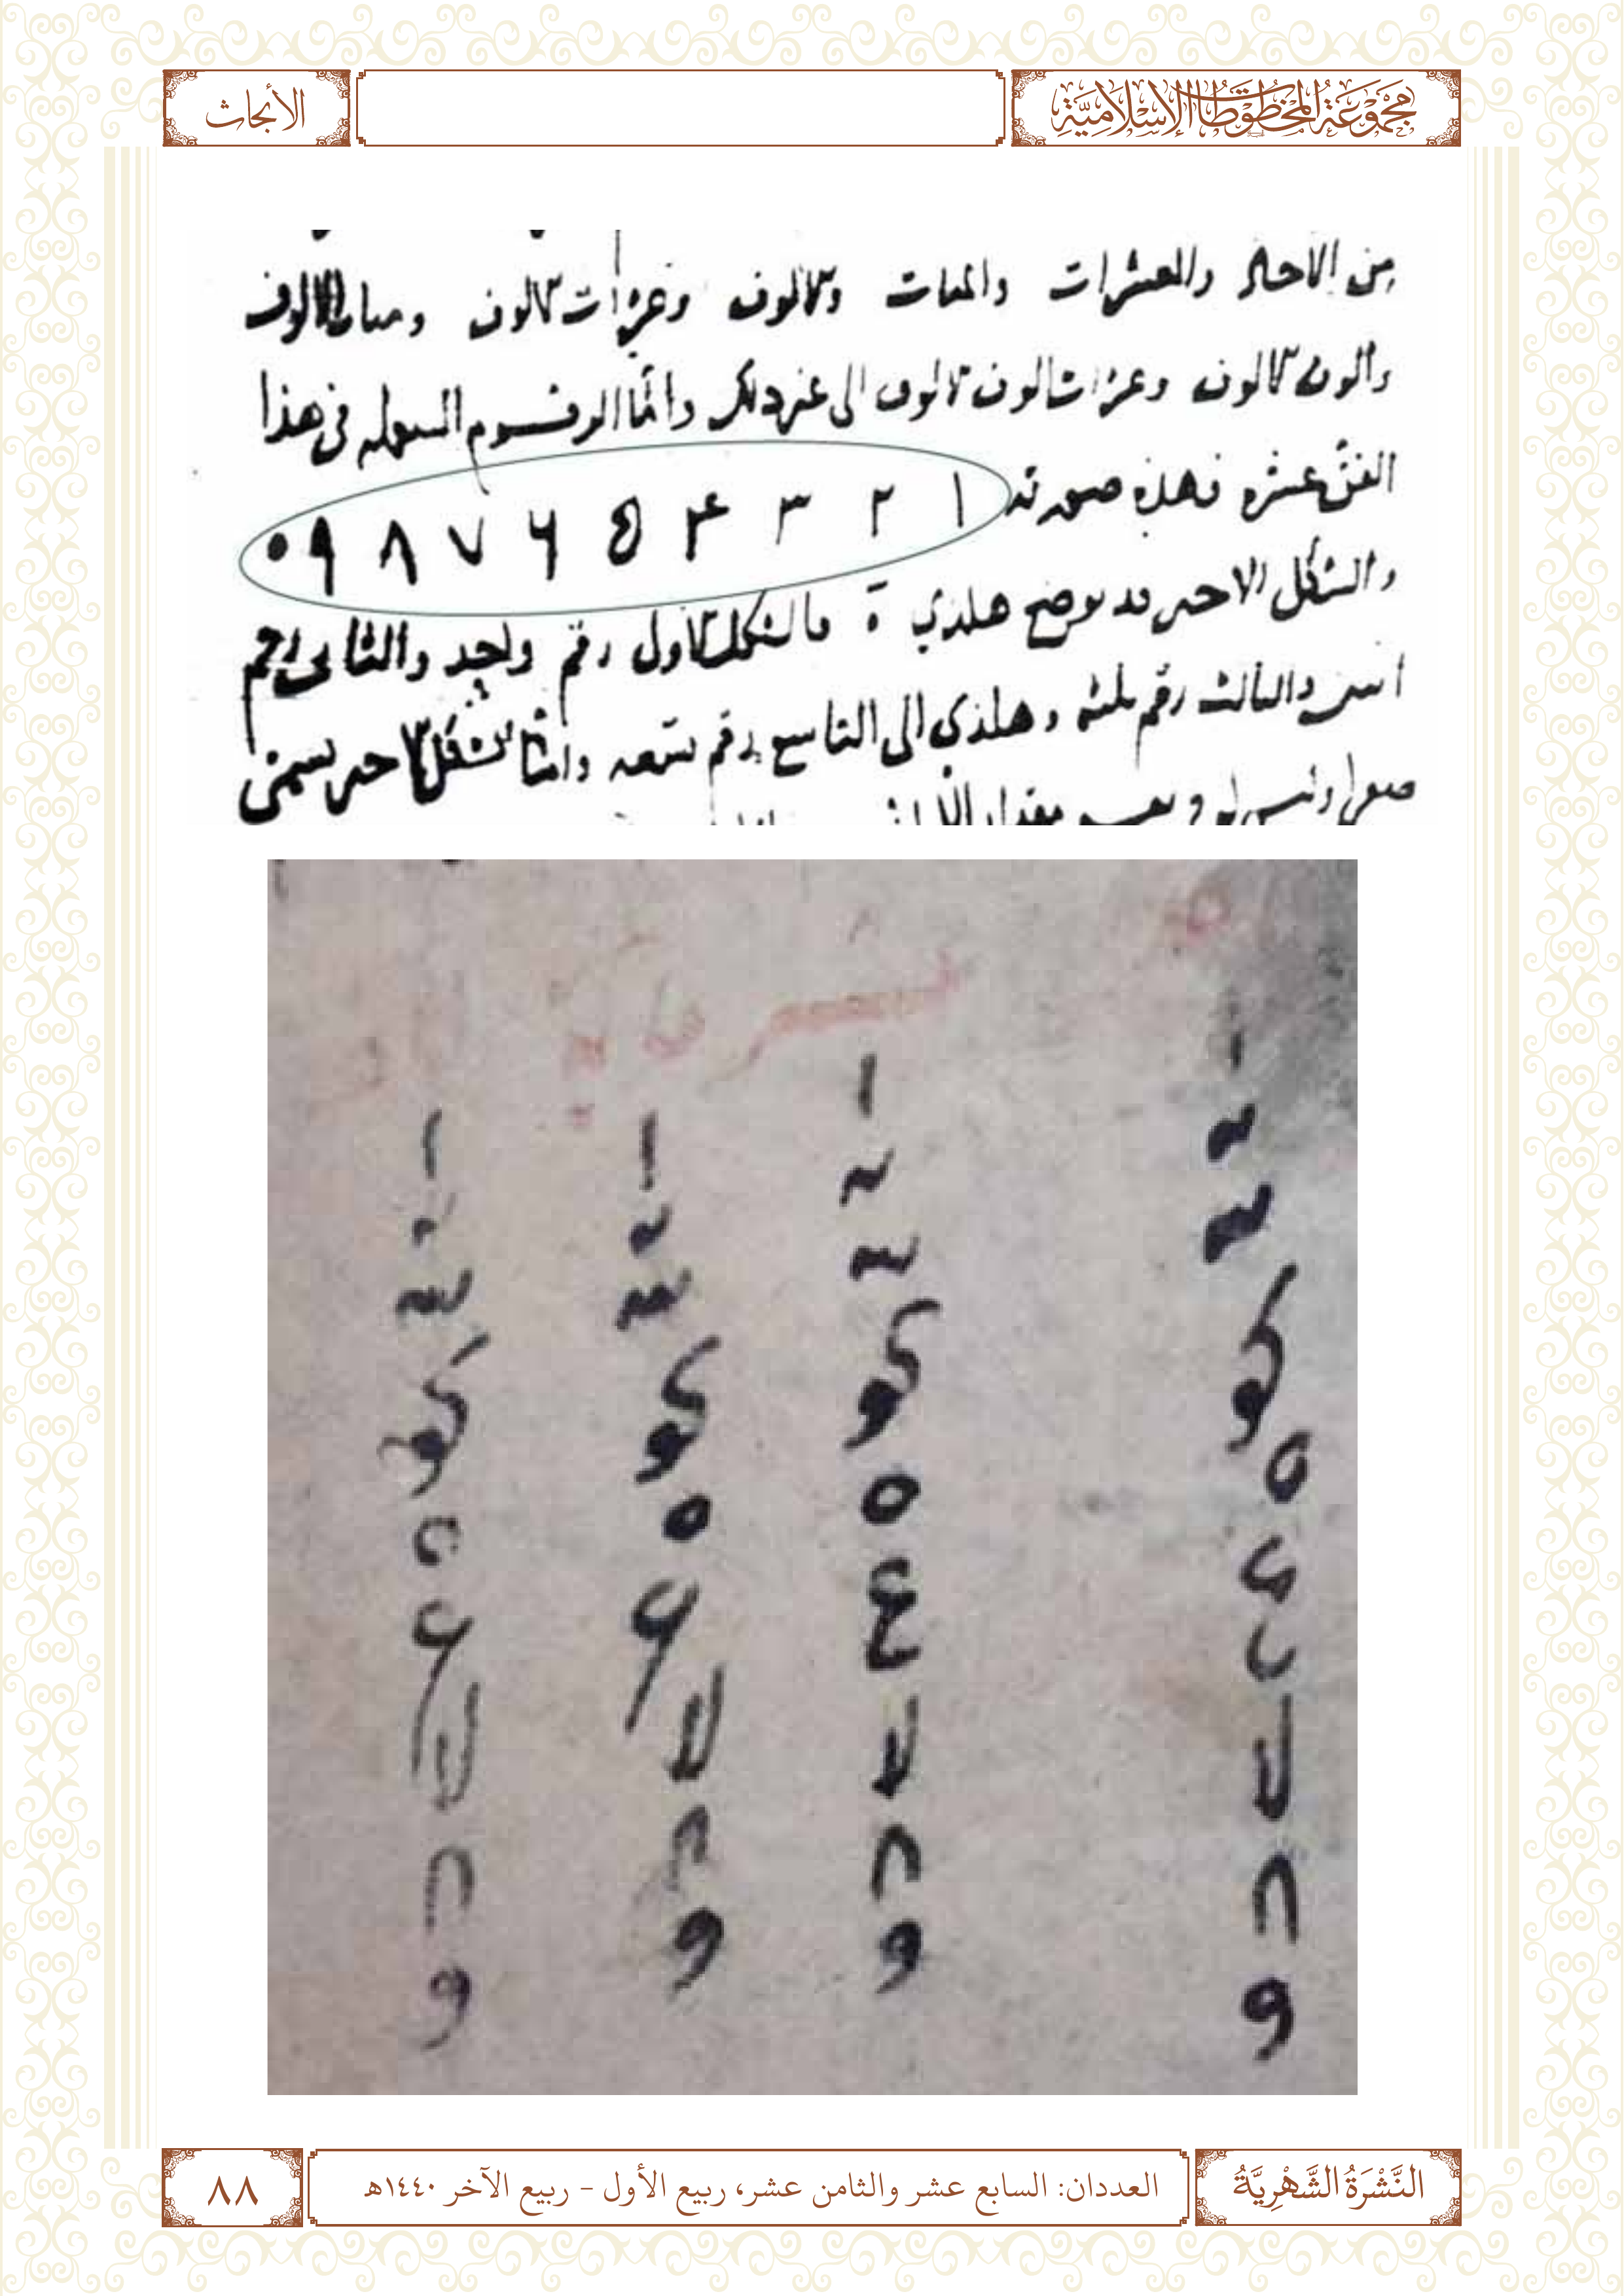 مَجْمُوعَةُ المَخْطُوطَاتِ الإِسْلَامِيَّةِ
الأبحاث
من الاحاد والعشرات والمئات والالوف وعشرات الالوف ومئات الالوف
والوف الالوف وعشرات الوف الالوف الى غير ذلك واما الرقوم المستعملة في هذا
الفن عشره فهذه صورته ١ ٢ ٣ ۴ ٥ ٦ ٧ ٨ ٩ ٠
والشكل الاخير قد يوضع هكذي فالشكل الاول رقم واحد والثاني رقم
اثنين والثالث رقم ثلثة وهكذي الى التاسع رقم تسعه واما الشكل الاخير يسمى
صفرا
١ ١ ١ ١
٢ ٢ ٢ ٢
٣ ٣ ٣ ٣
۴ ۴ ۴ ۴
٥ ٥ ٥ ٥
٦ ٦ ٦ ٦
٧ ٧ ٧ ٧
٨ ٨ ٨ ٨
٩ ٩ ٩ ٩
النَّشْرَةُ الشَّهْرِيَّةُ
العددان: السابع عشر والثامن عشر، ربيع الأول - ربيع الآخر ١٤٤٠هـ
٨٨